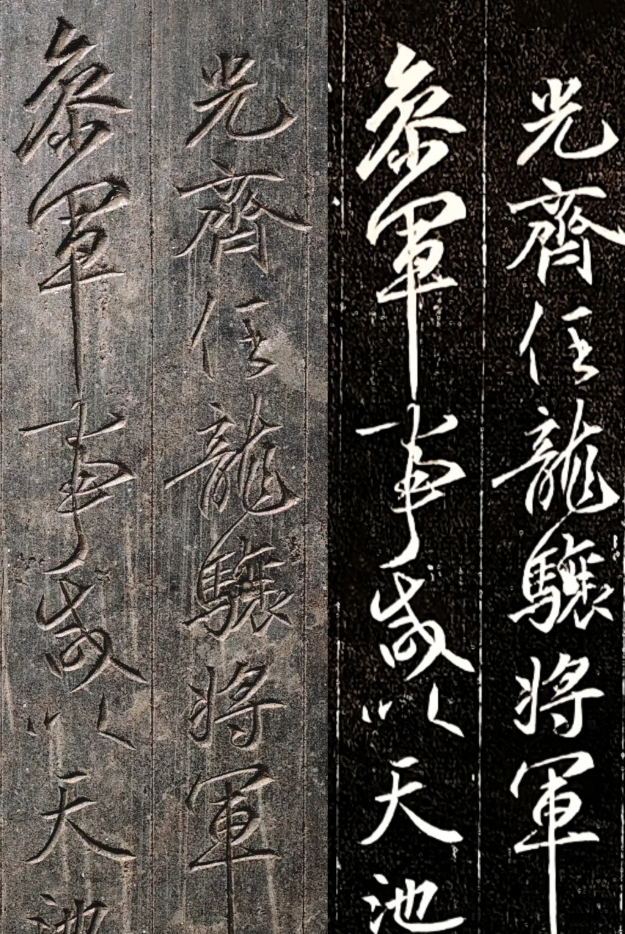 光齊任龍驤將軍
叅軍事咸以天池
光齊任龍驤將軍
叅軍事咸以天池